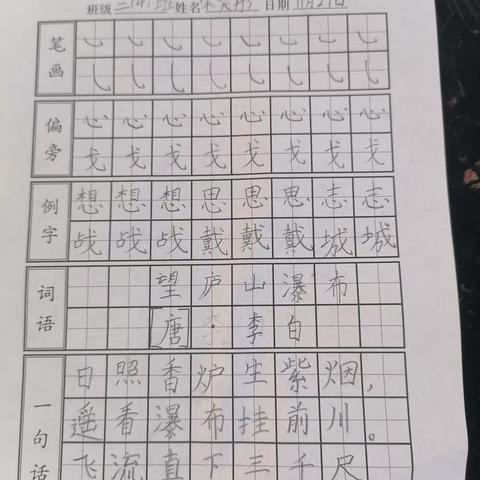 班级二(4)班姓名 日期11月29日
笔画 ㇃ ㇃ ㇃ ㇃ ㇃ ㇃ ㇃ ㇃
㇂ ㇂ ㇂ ㇂ ㇂ ㇂ ㇂ ㇂
偏旁 心 心 心 心 心 心 心 心
戈 戈 戈 戈 戈 戈 戈 戈
例字 想 想 想 思 思 思 志 志
战 战 战 戴 戴 戴 城 城
词语 望庐山瀑布
[唐]·李白
一句话 日照香炉生紫烟，
遥看瀑布挂前川。
飞流直下三千尺